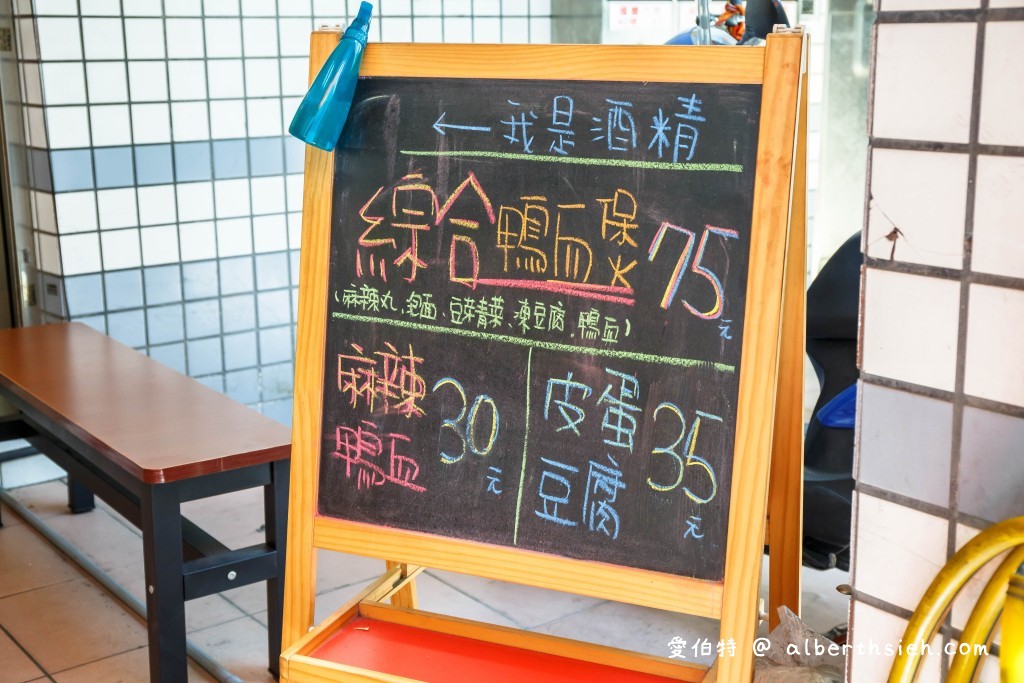 ← 我是酒精
綜合鴨血保火 75元
(麻辣丸、泡麵、豆芽青菜、凍豆腐、鴨血)
麻辣
鴨血
30元
皮蛋
豆腐
35元
愛伯特 @ alberthsieh.com